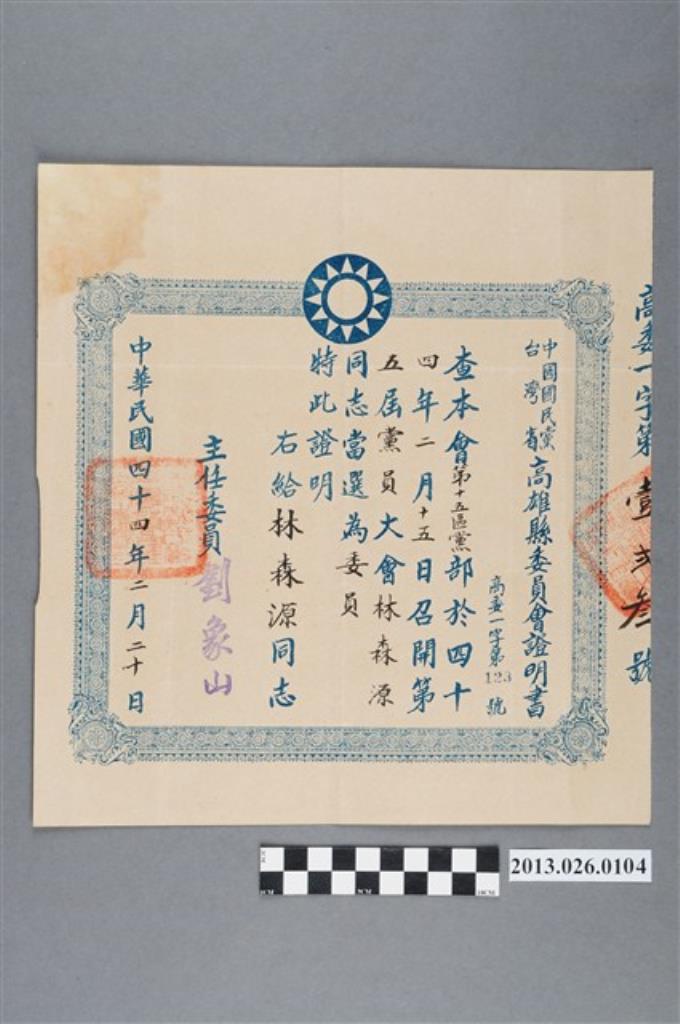 高委一字第壹貳叁號
中國國民黨台灣省高雄縣委員會證明書
高委一字第123號
查本會第十五區黨部於四十
四年二月十五日召開第
五屆黨員大會林森源
同志當選為委員
特此證明
右給林森源同志
主任委員劉象山
中華民國四十四年二月二十日
2013.026.0104